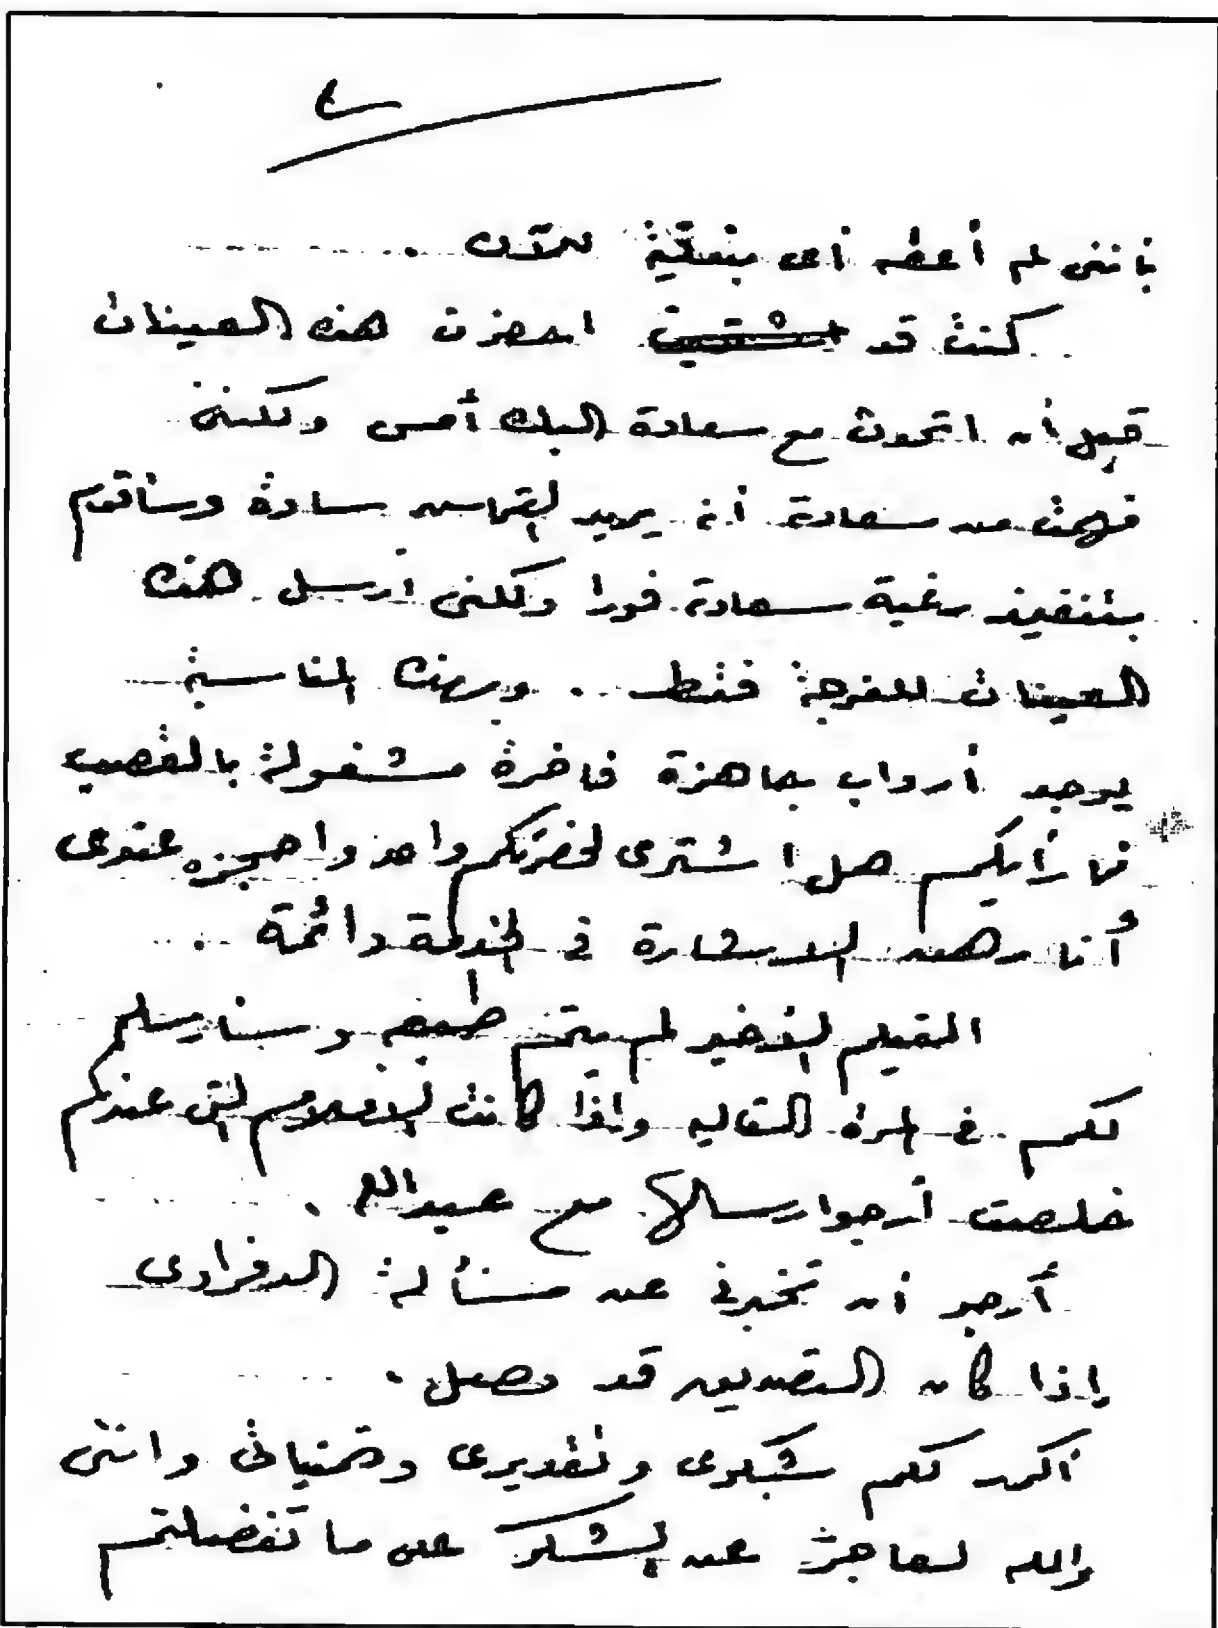 ٤
بأننى لم أعطه أى بنطلونه للآن .
كنت قد اشتريت احضرت هذه العينات
قبل أن اتحدث مع سعادة البك أمس ولكننى
فهمت من سعادته أنه يريد القماش سادة وسأقوم
بتنفيذ رغبة سعادته فورا ولكنى أرسل هذه
العينات للفرجة فقط .. وبهذه المناسبة
يوجد أرواب جاهزة فاخرة مشغولة بالقصب
فما رأيكم هل اشترى لحضرتكم واحد واحجزه عندى
أنا رهن الاشارة فى الخدمة دائمة .
الفيلم الأخير لم يتم طبعه وسنارسله
لكم فى المرة التالية واذا كانت الافلام التى عندكم
خلصت أرجو ارسالها مع عبدالله .
أرجو أن تخبرنى عن مسألة الدفراوى
إذا كان التصديق قد وصل .
أكرر لكم شكرى وتقديرى وتمنياتى واننى
والله لعاجز عن الشكر على ما تفضلتم